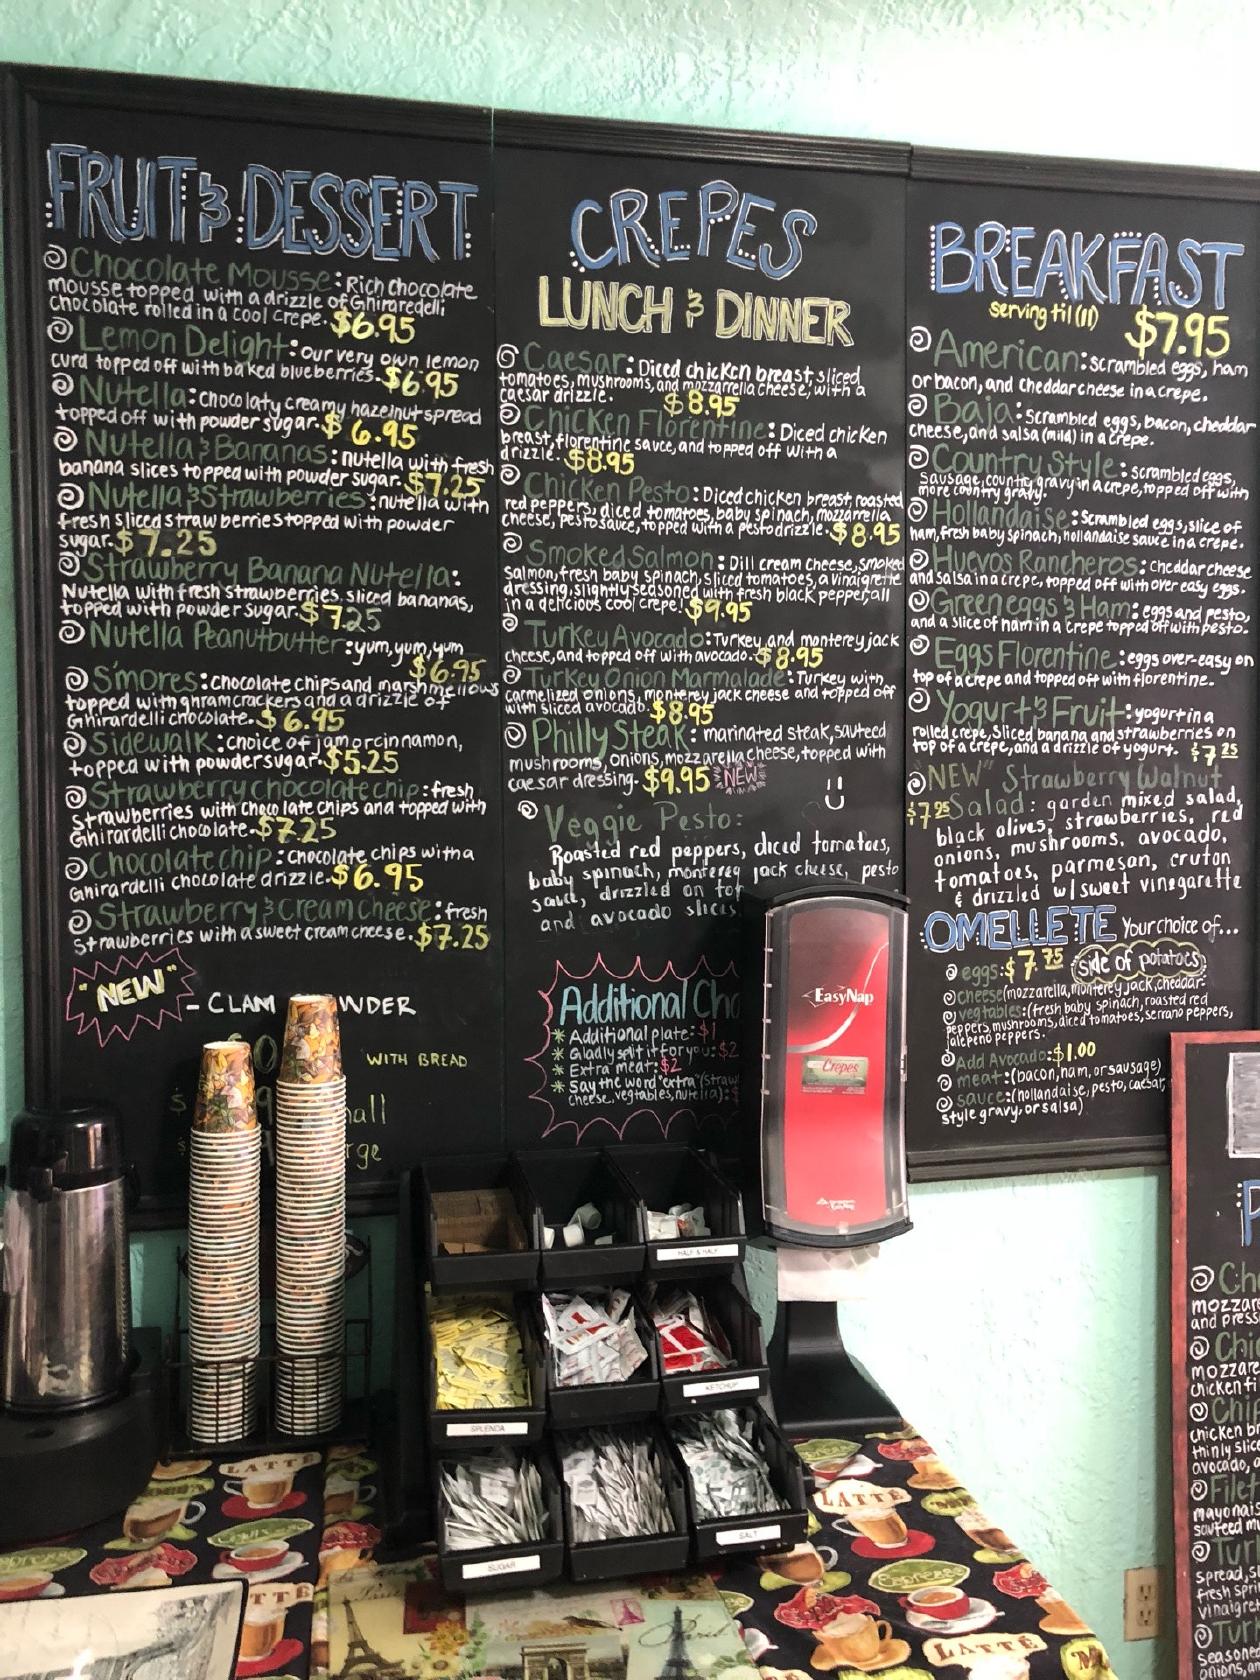 FRUIT & DESSERT
Chocolate Mousse: Rich chocolate
mousse topped with a drizzle of Ghiraredelli
chocolate rolled in a cool crepe. $6.95
Lemon Delight: our very own lemon
curd topped off with baked blueberries. $6.95
Nutella: chocolaty creamy hazelnut spread
topped off with powder sugar. $6.95
Nutella & Bananas: nutella with fresh
banana slices topped with powder sugar. $7.25
Nutella & Strawberries: nutella with
fresh sliced strawberries topped with powder
sugar. $7.25
Strawberry Banana Nutella:
Nutella with fresh strawberries, sliced bananas,
topped with powder sugar. $7.25
Nutella Peanutbutter: yum, yum, yum
$6.95
S'mores: chocolate chips and marshmellows
topped with ghram crackers and a drizzle of
Ghirardelli chocolate. $6.95
Sidewalk: choice of jam or cinnamon,
topped with powder sugar. $5.25
Strawberry chocolate chip: fresh
strawberries with chocolate chips and topped with
Ghirardelli chocolate. $7.25
Chocolate chip: chocolate chips with a
Ghirardelli chocolate drizzle. $6.95
Strawberry & Cream Cheese: fresh
strawberries with a sweet cream cheese. $7.25
"NEW" - CLAM WDER
WITH BREAD
CREPES
LUNCH & DINNER
Caesar: Diced chicken breast, sliced
tomatoes, mushrooms, and mozzarrella cheese, with a
caesar drizzle. $8.95
Chicken Florentine: Diced chicken
breast, florentine sauce, and topped off with a
drizzle. $8.95
Chicken Pesto: Diced chicken breast, roasted
red peppers, diced tomatoes, baby spinach, mozzarella
cheese, pesto sauce, topped with a pesto drizzle. $8.95
Smoked Salmon: Dill cream cheese, smoked
salmon, fresh baby spinach, sliced tomatoes, a vinaigrette
dressing, slightly seasoned with fresh black pepper, all
in a delicious cool crepe! $9.95
Turkey Avocado: Turkey and monterey jack
cheese, and topped off with avocado. $8.95
Turkey Onion Marmalade: Turkey with
carmelized onions, monterey jack cheese and topped off
with sliced avocado. $8.95
Philly Steak: marinated steak, sauteed
mushrooms, onions, mozzarella cheese, topped with
caesar dressing. $9.95 NEW
Veggie Pesto:
Roasted red peppers, diced tomatoes,
baby spinach, monterey jack cheese, pesto
sauce, drizzled on top
and avocado slices
Additional Cha
* Additional plate: $1
* Gladly split it for you: $2
* Extra meat: $2
* Say the word "extra" (straw
cheese, vegtables, nutella): $
BREAKFAST
serving til (11) $7.95
American: scrambled eggs, ham
or bacon, and cheddar cheese in a crepe.
Baja: Scrambled eggs, bacon, cheddar
cheese, and salsa (mild) in a crepe.
Country Style: scrambled eggs,
sausage, country gravy in a crepe, topped off with
more country gravy.
Hollandaise: Scrambled eggs, slice of
ham, fresh baby spinach, hollandaise sauce in a crepe.
Huevos Rancheros: cheddar cheese
and salsa in a crepe, topped off with over easy eggs.
Green eggs & Ham: eggs and pesto,
and a slice of ham in a crepe topped off with pesto.
Eggs Florentine: eggs over-easy on
top of a crepe and topped off with florentine.
Yogurt & Fruit: yogurt in a
rolled crepe, sliced banana and strawberries on
top of a crepe, and a drizzle of yogurt. $7 25
"NEW" Strawberry Walnut
$7 25 Salad: garden mixed salad,
black olives, strawberries, red
onions, mushrooms, avocado,
tomatoes, parmesan, cruton
& drizzled w/ sweet vinegarette
OMELLETE Your choice of...
eggs: $7.75 side of potatoes
cheese (mozzarella, monterey jack, cheddar
vegtables: (fresh baby spinach, roasted red
peppers, mushrooms, diced tomatoes, serrano peppers,
jalepeno peppers.
Add Avocado: $1.00
meat: (bacon, ham, or sausage)
sauce: (hollandaise, pesto, caesar,
style gravy, or salsa)
EasyNap
Crepes
HALF & HALF
SPLENDA
KETCHUP
SUGAR
SALT
P
Ch
mozzare
and press
Chic
mozzare
chicken fi
Chip
chicken br
thinly slice
avocado, a
Filet
mayonai
sauteed mu
Turk
spread, sl
fresh spri
vinaigret
Tur
season
onions an
LATTE
LATTE
LATTE
LATTE
Espresso
Paris